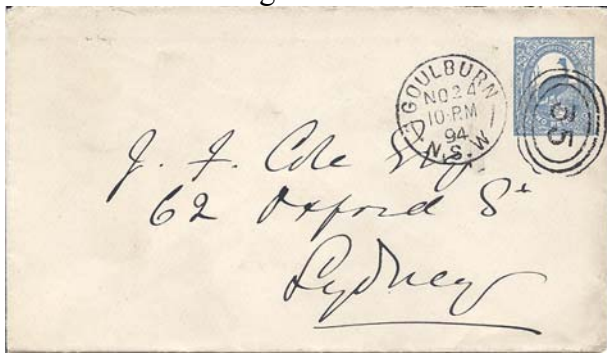 GOULBURN
NO 24
10·PM
94
N.S.W
55
J. F. Cole Esq
62 Oxford St
Sydney